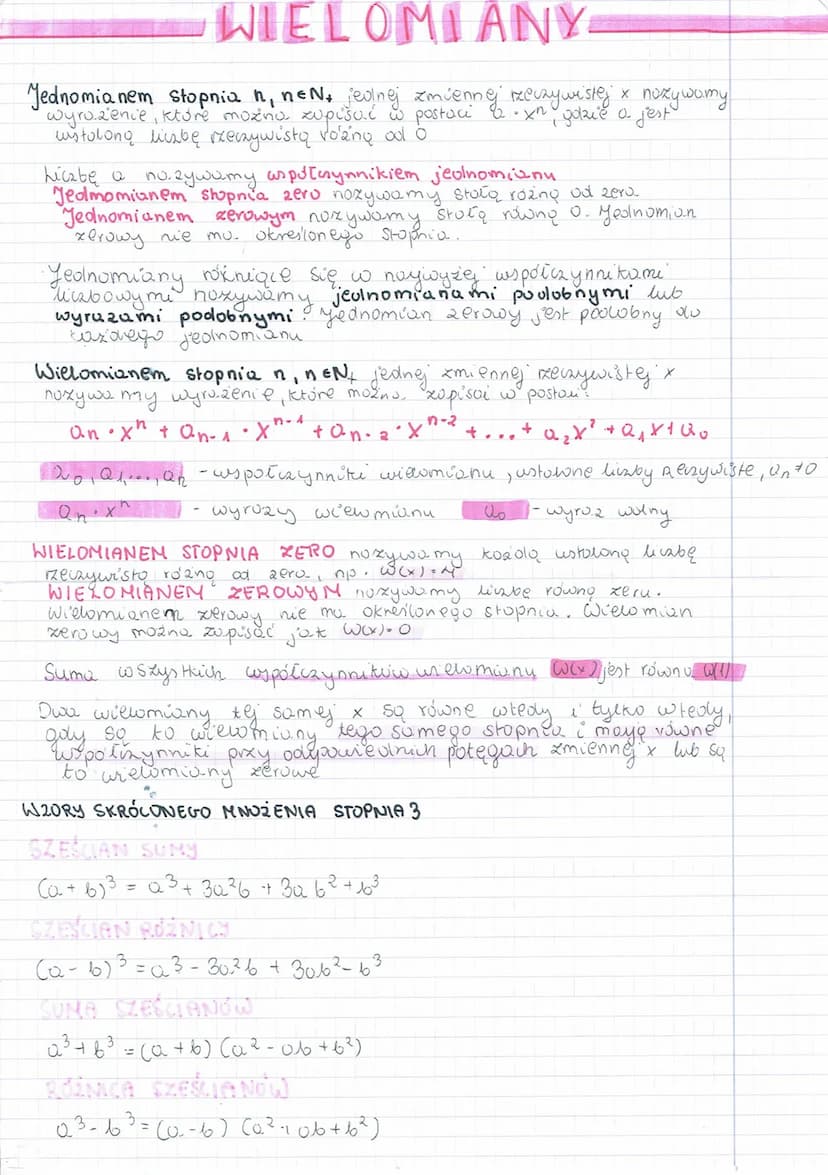 WIELOMIANY
Jednomianem stopnia n, n∈N₊ jednej zmiennej rzeczywistej x nazywamy
wyrażenie, które można zapisać w postaci a · xⁿ, gdzie a jest
ustaloną liczbę rzeczywistą różną od 0
Liczbę a nazywamy współczynnikiem jednomianu
Jednomianem stopnia zero nazywamy stałą różną od zera
Jednomianem zerowym nazywamy stałą równą 0. Jednomian
zerowy nie ma określonego stopnia.
Jednomiany różniące się w najwyżej współczynnikami
liczbowymi nazywamy jednomianami podobnymi lub
wyrazami podobnymi. Jednomian zerowy jest podobny do
każdego jednomianu
Wielomianem stopnia n, n∈N₊ jednej zmiennej rzeczywistej x
nazywamy wyrażenie, które można zapisać w postaci:
aₙ · xⁿ + aₙ₋₁ · xⁿ⁻¹ + aₙ₋₂ · xⁿ⁻² + ... + a₂x² + a₁x + a₀
a₀, a₁, ..., aₙ - współczynniki wielomianu, ustalone liczby rzeczywiste, aₙ ≠ 0
aₙ · xⁿ - wyrazy wielomianu a₀ - wyraz wolny
WIELOMIANEM STOPNIA ZERO nazywamy każdą ustaloną liczbę
rzeczywistą różną od zera, np. W(x) = 4
WIELOMIANEM ZEROWYM nazywamy liczbę równą zeru.
Wielomianem zerowy nie ma określonego stopnia. Wielomian
zerowy można zapisać jak W(x) = 0
Suma wszystkich współczynników wielomianu W(x) jest równa W(1)
Dwa wielomiany tej samej x są równe wtedy i tylko wtedy,
gdy są to wielomiany tego samego stopnia i mają równe
współczynniki przy odpowiednich potęgach zmiennej x lub są
to wielomiany zerowe
WZORY SKRÓCONEGO MNOŻENIA STOPNIA 3
SZEŚCIAN SUMY
(a + b)³ = a³ + 3a²b + 3ab² + b³
SZEŚCIAN RÓŻNICY
(a - b)³ = a³ - 3a²b + 3ab² - b³
SUMA SZEŚCIANÓW
a³ + b³ = (a + b) (a² - ab + b²)
RÓŻNICA SZEŚCIANÓW
a³ - b³ = (a - b) (a² + ab + b²)